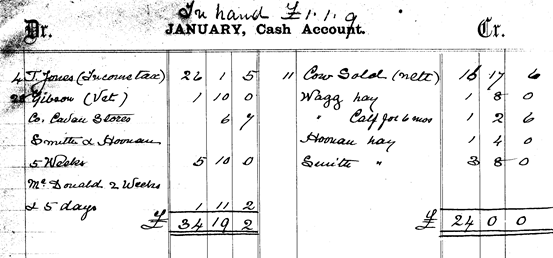 In hand £1.1.9
Dr. JANUARY, Cash Account. Cr.
4 T. Jones (Income tax) 26 1 5 11 Cow Sold (nett) 16 17 6
Gibson (Vet) 1 10 0 Wagg hay 1 8 0
Co. Cavan Stores 6 7 " Calf for 6 mos 1 2 6
Smith & Hoonan Hoonan hay 1 4 0
5 Weeks 5 10 0 Smith " 3 8 0
Mc Donald 2 Weeks
& 5 days 1 11 2
£ 34 19 2 £ 24 0 0